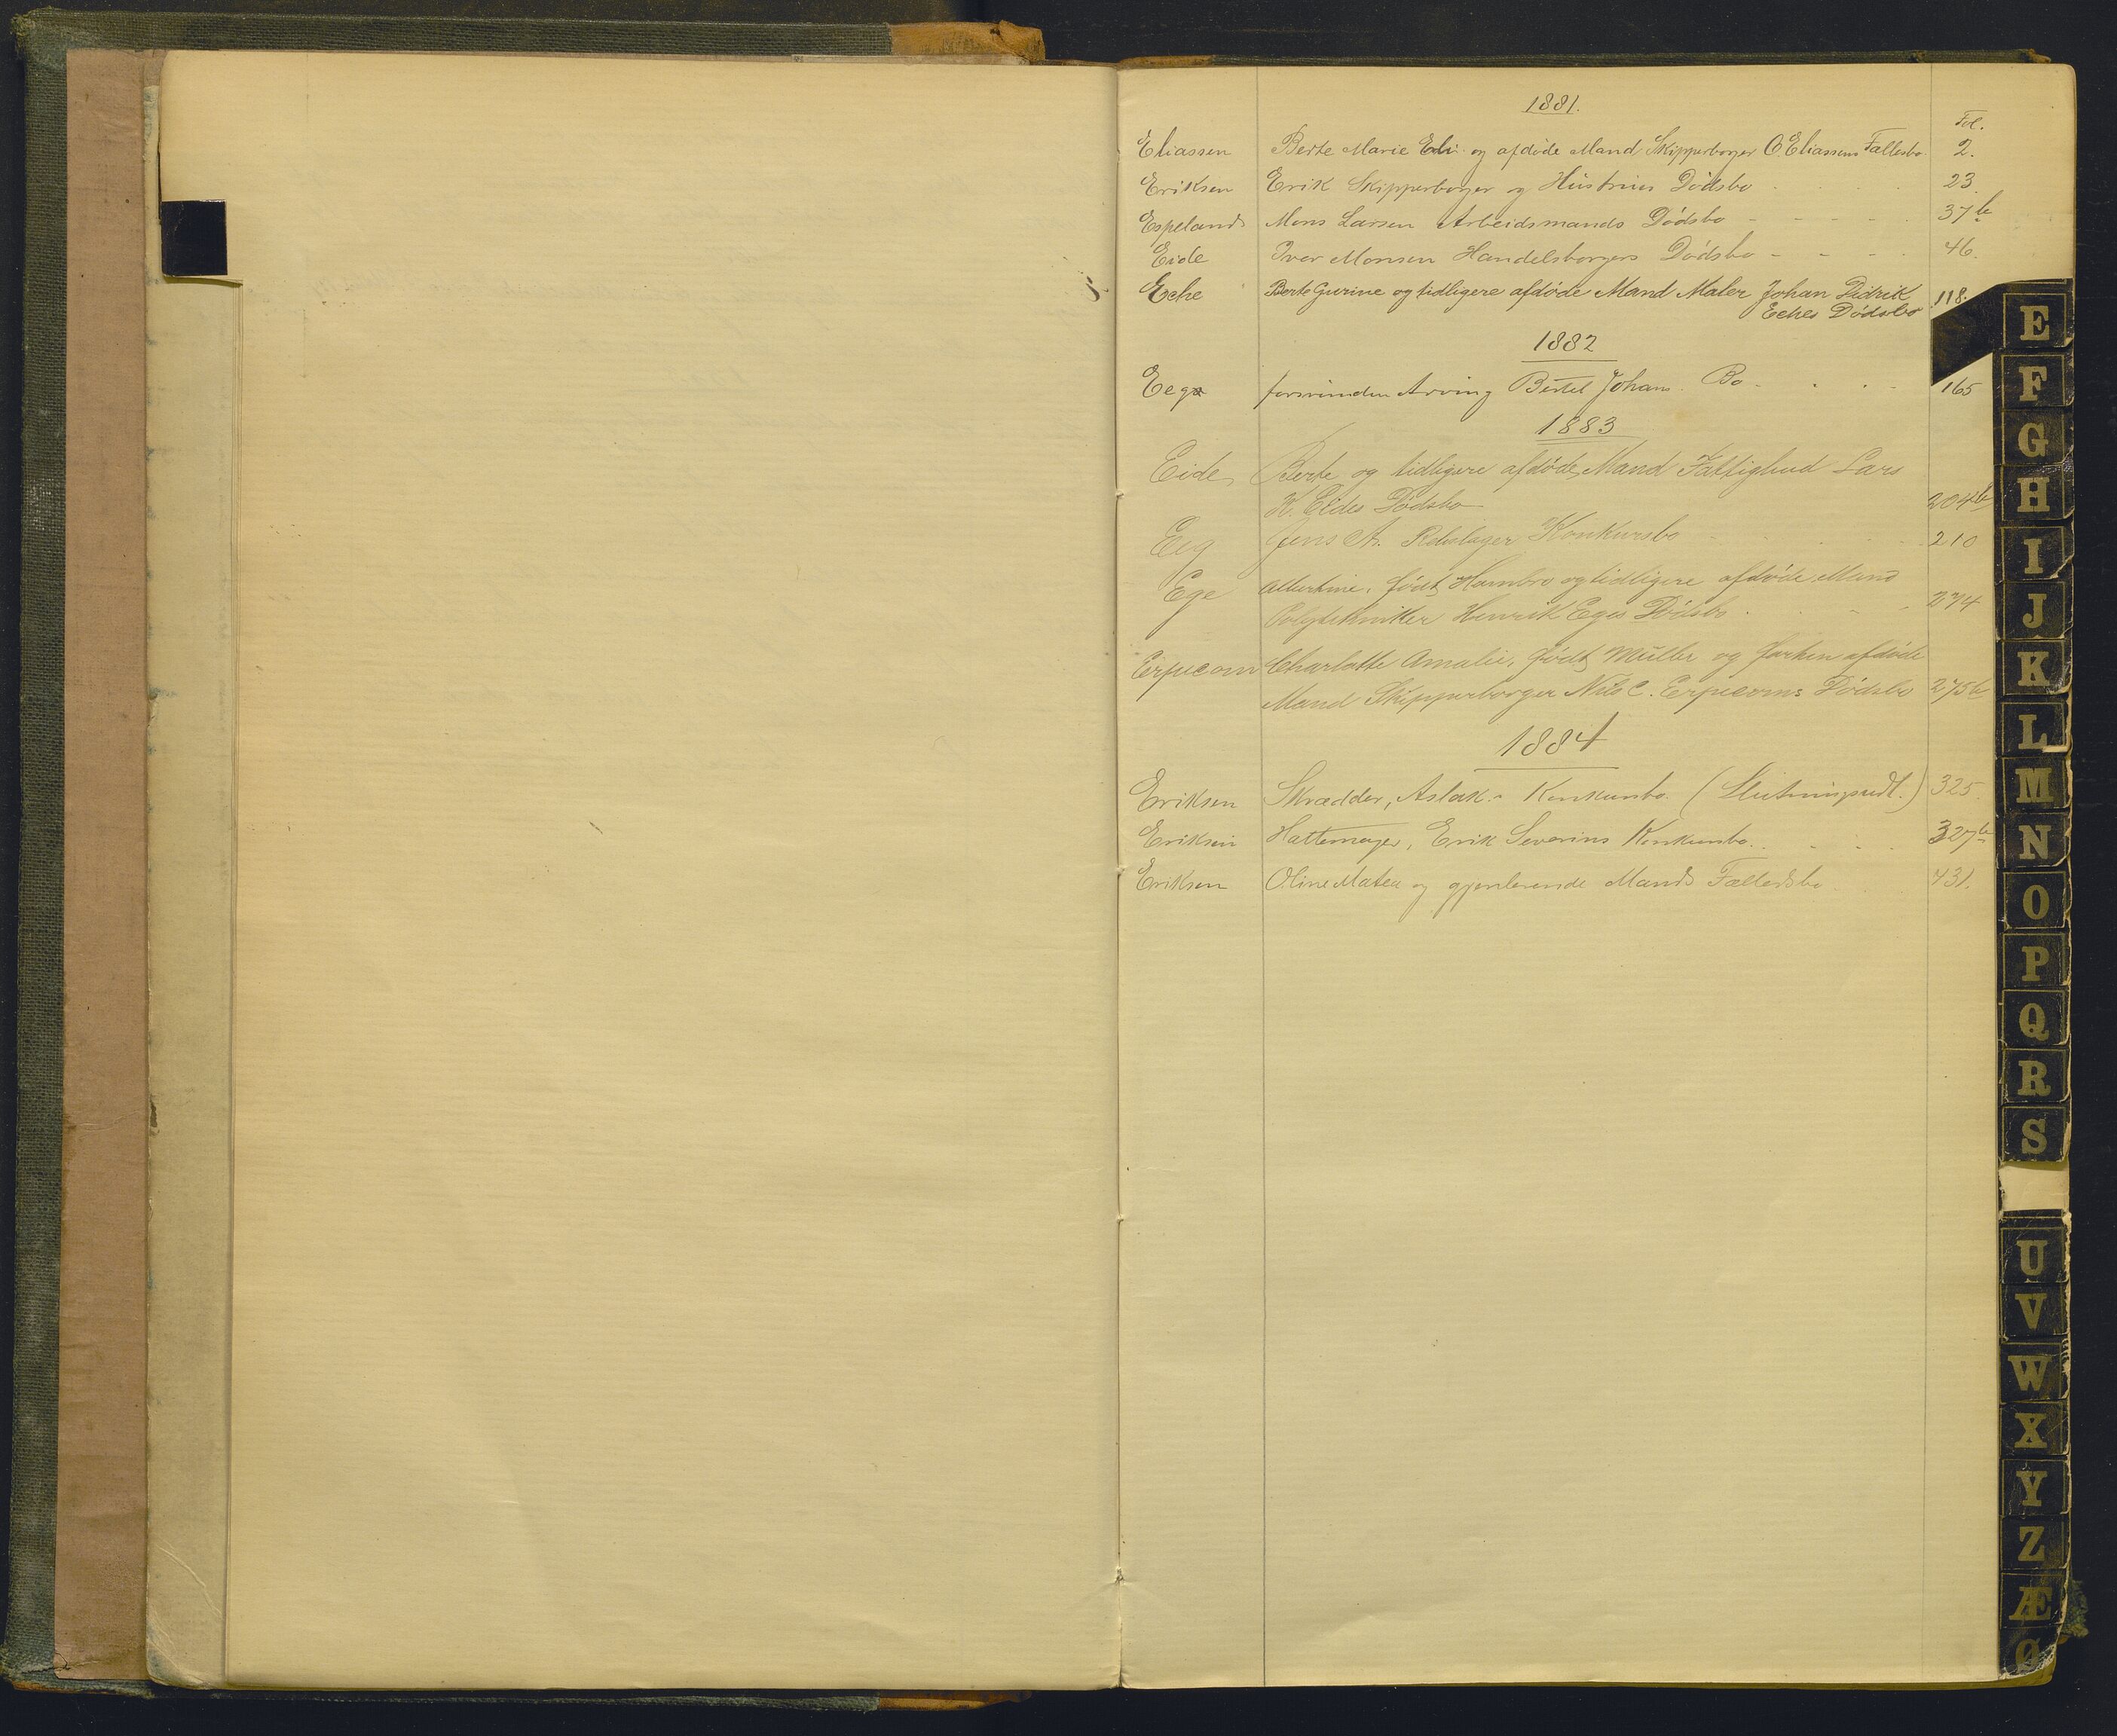 1881.
Fol.
Eliassen Berte Marie Eli. og afdøde Mand Skipperborger O Eliassens Fællesbo 2.
Eriksen Erik Skipperborger og Hustrues Dødsbo 23.
Espelands Mons Larsen Arbeidsmands Dødsbo 37b
Eide Iver Monsen Handelsborgers Dødsbo 46.
Eche Berte Gurine og tidligere afdøde Mand Maler Johan Didrik 118.
Eches Dødsbo
1882
Eeg forsvunden Arving Bertel Johans. Bo 165
1883
Eide, Berte og tidligere afdøde Mand Fattiglem Lars
K. Eides Dødsbo 204b
Eeg Jens A. Rebslager Konkursbo 210
Ege Albertine, født Hambro og tidligere afdøde Mand
Polytekniker Henrik Eges Dødsbo 274
Erpecom Charlotte Amalie, født Müller og forhen afdøde
Mand Skipperborger Nils C. Erpecoms Dødsbo 275b
1884
Eriksen Skrædder, Aslak - Konkursbo. (Slutningsudl.) 325.
Eriksen Hattemager, Erik Severins Konkursbo. 327b
Eriksen Oline Matea og gjenlevende Mands Fælledsbo 431.
E
F
G
H
I
J
K
L
M
N
O
P
Q
R
S
U
V
W
X
Y
Z
Æ
Ø